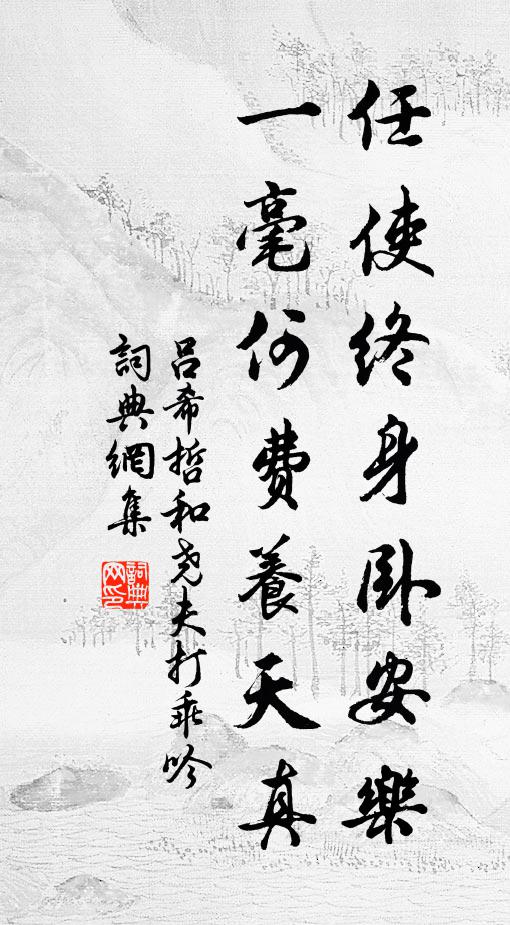 任使終身卧安樂
一毫何費養天真
呂希哲和尧夫打乖吟
詞典網集
詞典网印